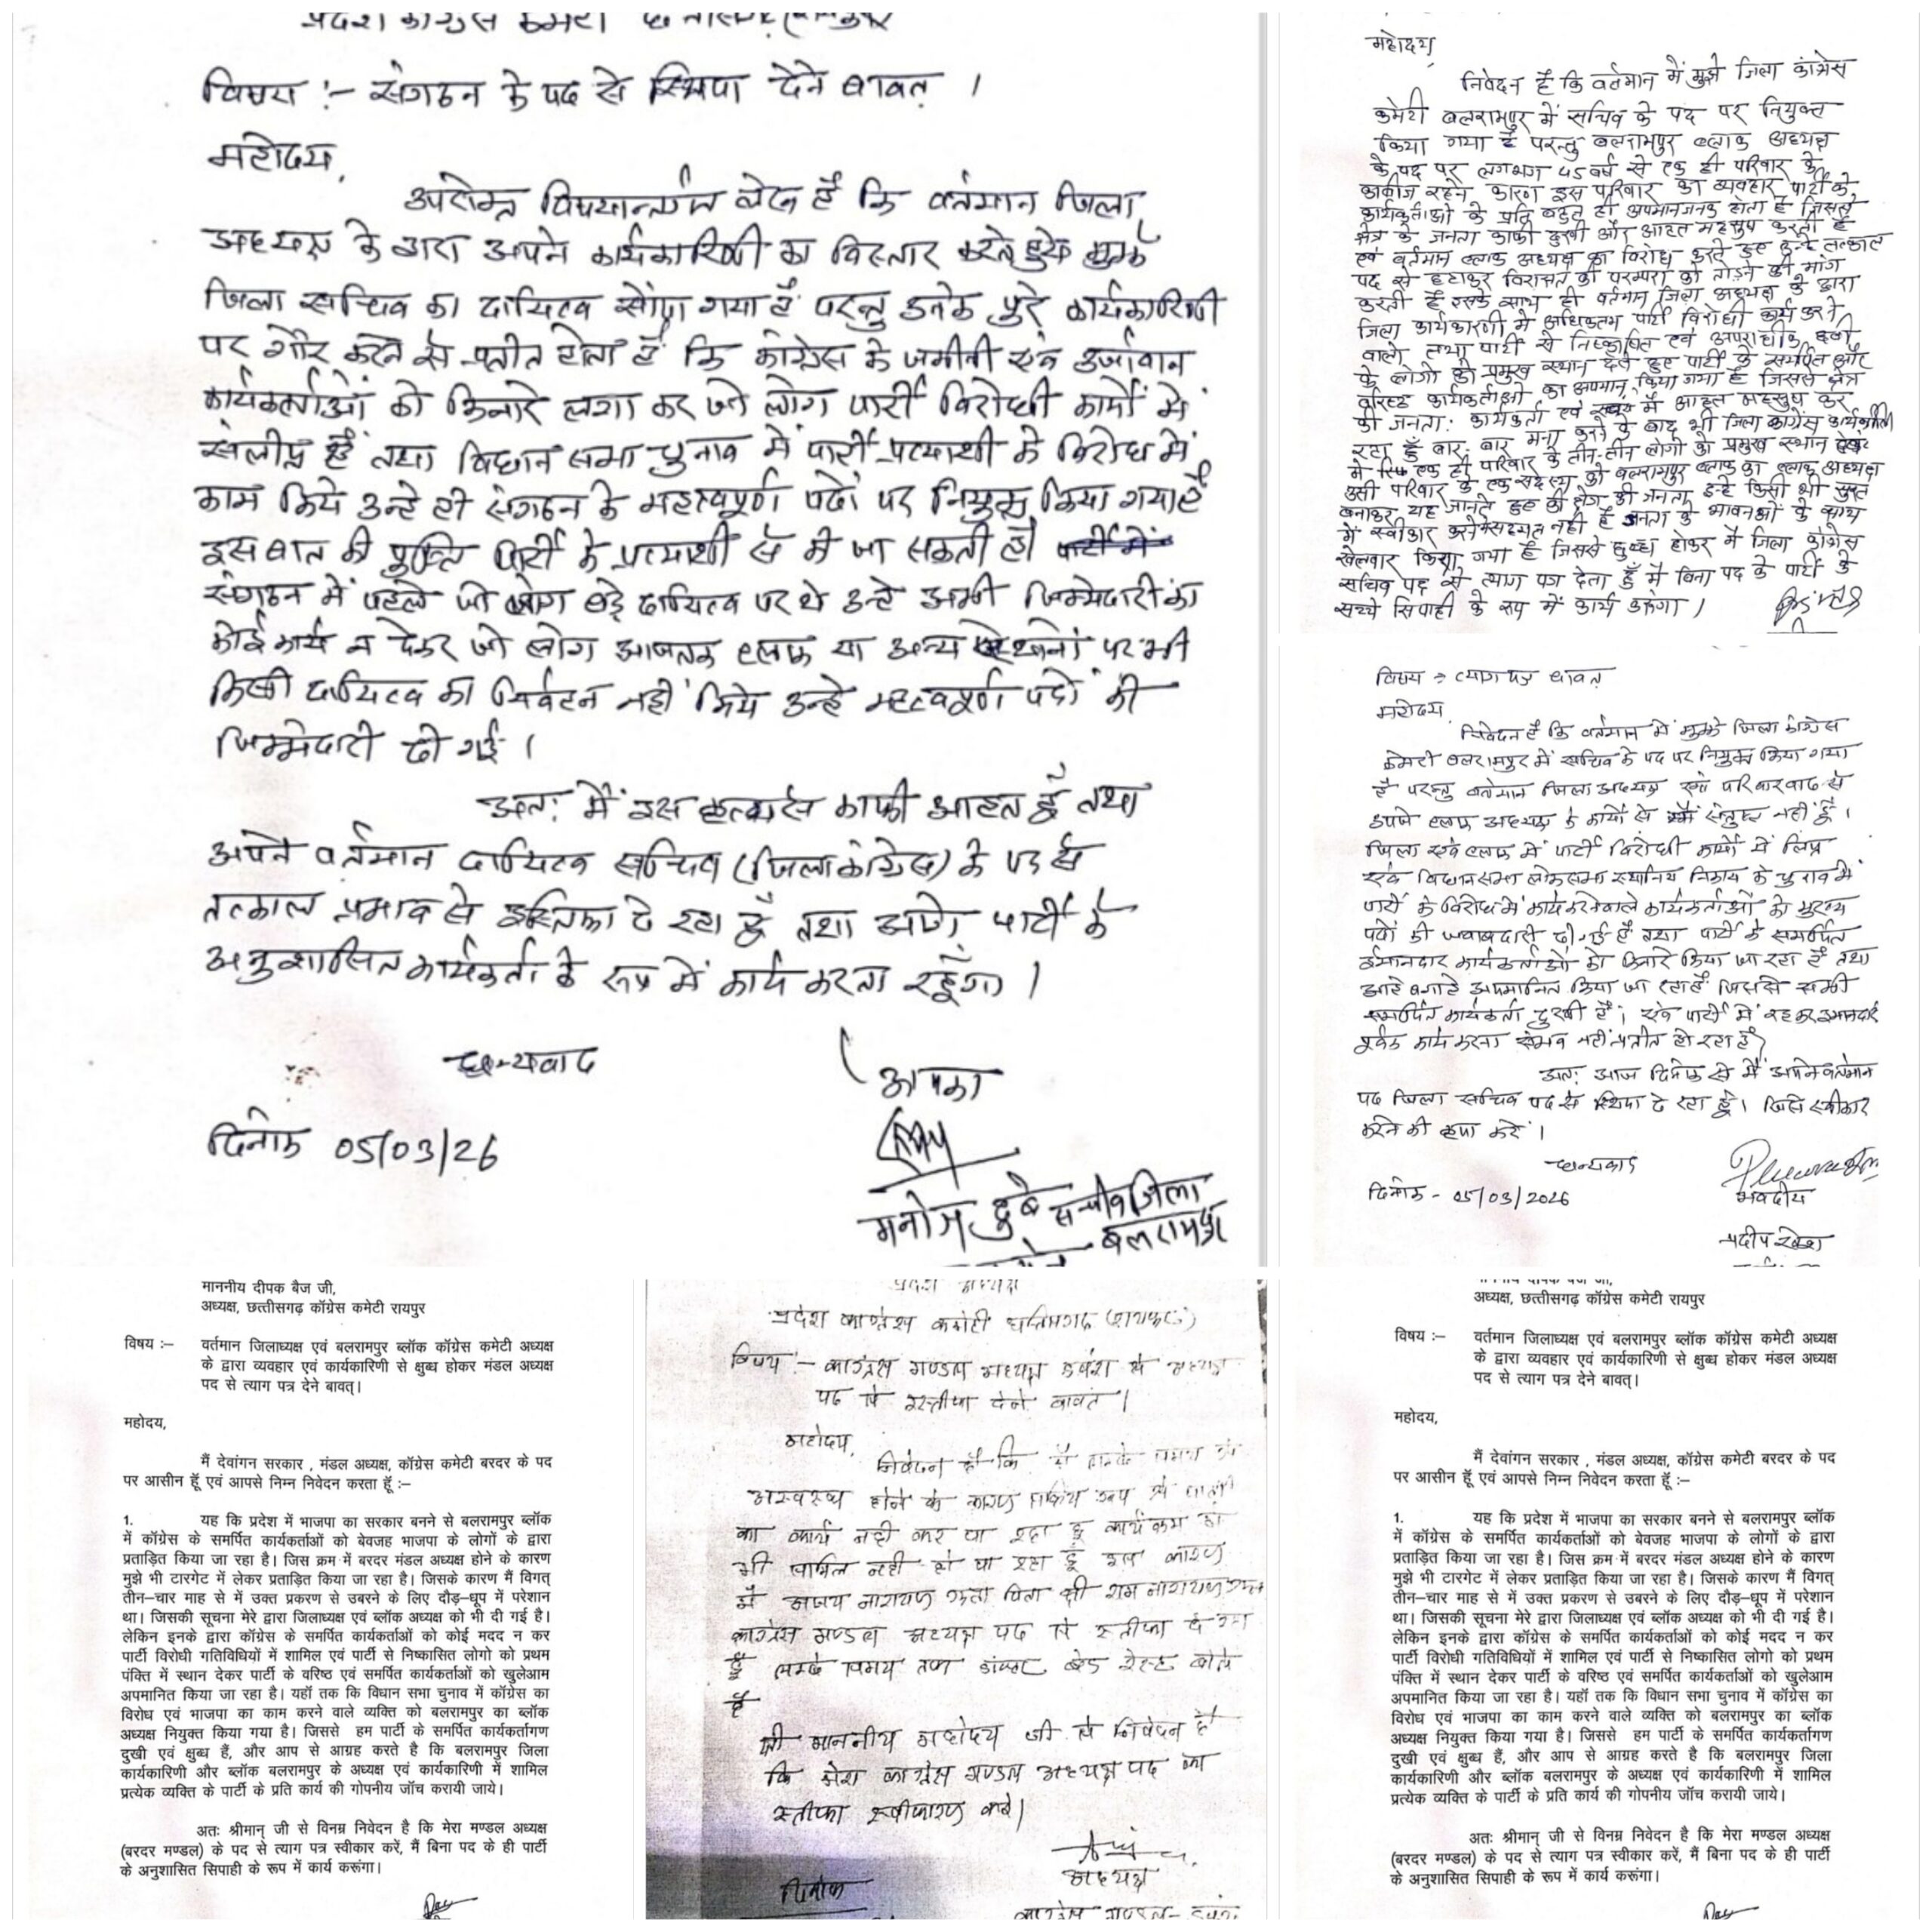 प्रदेश कांग्रेस कमेटी
विषय :- संगठन के पद से स्थिपा देने बावत् ।
महोदय,
उपरोक्त विषयान्तर्गत लेख है कि वर्तमान जिला
अध्यक्ष के द्वारा अपने कार्यकारिणी का विस्तार करते हुये मुझे
जिला सचिव का दायित्व सौंपा गया है परन्तु उनके पुरे कार्यकारिणी
पर गौर करने से प्रतीत होता है कि कांग्रेस के जमीनी एवं उर्जावान
कार्यकर्ताओं को किनारे लगा कर जो लोग पार्टी विरोधी कार्यों में
संलीप्त हैं तथा विधान सभा चुनाव में पार्टी प्रत्याशी के विरोध में
काम किये उन्हे ही संगठन के महत्वपूर्ण पदों पर नियुक्त किया गया है
इस बात की पुष्टि पार्टी के प्रत्याशी से भी जा सकती हैं
संगठन में पहले जो लोग बड़े दायित्व पर थे उन्हे अभी जिम्मेदारी का
कोई कार्य न देकर जो लोग आजतक ब्लाक या अन्य पर भी
किसी दायित्व का निर्वहन नहीं किये उन्हे महत्वपूर्ण पदों की
जिम्मेदारी दी गई ।
अतः मैं इस से काफी आहत हूँ तथा
अपने वर्तमान दायित्व सचिव (जिला कांग्रेस) के पद से
तत्काल प्रभाव से इस्तिफा दे रहा हूँ तथा आगे पार्टी के
अनुशासित कार्यकर्ता के रूप में कार्य करता रहूँगा ।
धन्यवाद
आपका
दिनांक 05/03/26
मनोज दुबे सचीव जिला
बलरामपुर
महोदय,
निवेदन है कि वर्तमान में मुझे जिला कांग्रेस
कमेटी बलरामपुर में सचिव के पद पर नियुक्त
किया गया है परन्तु बलरामपुर ब्लाक अध्यक्ष
के पद पर लगभग 45 वर्ष से एक ही परिवार के
काबीज रहने कारण इस परिवार का व्यवहार पार्टी के
कार्यकर्ताओ के प्रति बहुत ही अपमानजनक होता है जिससे
क्षेत्र के जनता काफी दुखी और आहत महसुस करती है
एवं वर्तमान ब्लाक अध्यक्ष का विरोध करते हुए इन्हे तत्काल
पद से हटाकर विरासत की परम्परा को तोड़ने की मांग
करती है इसके साथ ही वर्तमान जिला अध्यक्ष के द्वारा
जिला कार्यकारणी में अधिकतम पार्टी विरोधी कार्य करने
वालो तथा पार्टी से निष्कासित एवं अपराधीक छबी
के लोगो को प्रमुख स्थान देते हुए पार्टी के समर्पित और
वरिष्ट कार्यकर्ताओ का अपमान किया गया है जिससे क्षेत्र
की जनता: कार्यकर्ता एवं स्वयं मैं आहत महसुस कर
रहा हूँ बार-बार मना करने के बाद भी जिला कांग्रेस कार्यकारिणी
में सिर्फ एक ही परिवार के तीन-तीन लोगो को प्रमुख स्थान देकर
उसी परिवार के एक सदस्य को बलरामपुर ब्लाक का ब्लाक अध्यक्ष
बनाकर यह जानते हुए की क्षेत्र की जनता इन्हे किसी भी सुरत
में स्वीकार करने सहमत नही है जनता के भावनओं के साथ
खेलवार किया गया है जिससे छुब्ध होकर मैं जिला कांग्रेस
सचिव पद से त्याग पत्र देता हूँ मैं बिना पद के पार्टी के
सच्चे सिपाही के रूप में कार्य करूंगा ।
विषय → त्याग पत्र बावत्
महोदय,
निवेदन है कि वर्तमान में मुझे जिला कांग्रेस
कमेटी बलरामपुर में सचिव के पद पर नियुक्त किया गया
है परन्तु वर्तमान जिला अध्यक्ष एवं परिवारवाद से
उपजे ब्लाक अध्यक्ष के कार्यो से मैं संतुष्ट नहीं हूँ ।
जिला एवं ब्लाक में पार्टी विरोधी कार्यो में लिप्त
एवं विधानसभा लोकसभा स्थानिय निकाय के चुनाव में
पार्टी के विरोध में कार्य करनेवाले कार्यकर्ताओं को मुख्य
पदों की जवाबदारी दी गई है तथा पार्टी के समर्पित
ईमानदार कार्यकर्ताओं को किनारे किया जा रहा है तथा
आये अपमानित किया जा रहा है जिससे सभी
समर्पित कार्यकर्ता दुखी हैं। एवं पार्टी में रह कर इमानदारी
पूर्वक कार्य करना संभव नहीं प्रतीत हो रहा है।
अतः आज दिनांक से मैं अपने वर्तमान
पद जिला सचिव पद से स्थिपा दे रहा हूँ। जिसे स्वीकार
करने की कृपा करें ।
धन्यवाद
दिनांक - 05/03/2026
भवदीय
प्रदीप
माननीय दीपक बैज जी,
अध्यक्ष, छत्तीसगढ़ कॉंग्रेस कमेटी रायपुर
विषय :– वर्तमान जिलाध्यक्ष एवं बलरामपुर ब्लॉक कॉंग्रेस कमेटी अध्यक्ष
के द्वारा व्यवहार एवं कार्यकारिणी से क्षुब्ध होकर मंडल अध्यक्ष
पद से त्याग पत्र देने बावत्।
महोदय,
मैं देवांगन सरकार , मंडल अध्यक्ष, कॉंग्रेस कमेटी बरदर के पद
पर आसीन हूँ एवं आपसे निम्न निवेदन करता हूँ :–
1. यह कि प्रदेश में भाजपा का सरकार बनने से बलरामपुर ब्लॉक
में कॉंग्रेस के समर्पित कार्यकर्ताओं को बेवजह भाजपा के लोगों के द्वारा
प्रताड़ित किया जा रहा है। जिस क्रम में बरदर मंडल अध्यक्ष होने के कारण
मुझे भी टारगेट में लेकर प्रताड़ित किया जा रहा है। जिसके कारण मैं विगत्
तीन–चार माह से में उक्त प्रकरण से उबरने के लिए दौड़–धूप में परेशान
था। जिसकी सूचना मेरे द्वारा जिलाध्यक्ष एवं ब्लॉक अध्यक्ष को भी दी गई है।
लेकिन इनके द्वारा कॉंग्रेस के समर्पित कार्यकर्ताओं को कोई मदद न कर
पार्टी विरोधी गतिविधियों में शामिल एवं पार्टी से निष्कासित लोगो को प्रथम
पंक्ति में स्थान देकर पार्टी के वरिष्ठ एवं समर्पित कार्यकर्ताओं को खुलेआम
अपमानित किया जा रहा है। यहाँ तक कि विधान सभा चुनाव में कॉंग्रेस का
विरोध एवं भाजपा का काम करने वाले व्यक्ति को बलरामपुर का ब्लॉक
अध्यक्ष नियुक्त किया गया है। जिससे हम पार्टी के समर्पित कार्यकर्तागण
दुखी एवं क्षुब्ध हैं, और आप से आग्रह करते है कि बलरामपुर जिला
कार्यकारिणी और ब्लॉक बलरामपुर के अध्यक्ष एवं कार्यकारिणी में शामिल
प्रत्येक व्यक्ति के पार्टी के प्रति कार्य की गोपनीय जाँच करायी जाये।
अतः श्रीमान् जी से विनम्र निवेदन है कि मेरा मण्डल अध्यक्ष
(बरदर मण्डल) के पद से त्याग पत्र स्वीकार करें, मैं बिना पद के ही पार्टी
के अनुशासित सिपाही के रूप में कार्य करूंगा।
प्रदेश अध्यक्ष
प्रदेश काग्रेस कमेटी
विषय :- काग्रेस मण्डल अध्यक्ष से अध्यक्ष
पद से स्तीफा देने बावत ।
महोदय,
निवेदन है कि मैं लम्बे समय से
अस्वस्थ होने के कारण सक्रिय रूप से पार्टी
का कार्य नही कर पा रहा हूँ कार्यक्रम
भी सामिल नही हो पा रहा हूँ इस कारण
मैं नारायण पिता श्री राम नारायण
काग्रेस मण्डल अध्यक्ष पद से स्तीफा दे रहा
हूँ लम्बे समय तक डॉक्टर बेड रेस्ट बोले
है
श्री माननीय महोदय जी से निवेदन है
कि मेरा काग्रेस मण्डल अध्यक्ष पद का
स्तीफा स्वीकारण करे।
अध्यक्ष
दिनांक
काग्रेस मण्डल-
माननीय दीपक बैज जी,
अध्यक्ष, छत्तीसगढ़ कॉंग्रेस कमेटी रायपुर
विषय :– वर्तमान जिलाध्यक्ष एवं बलरामपुर ब्लॉक कॉंग्रेस कमेटी अध्यक्ष
के द्वारा व्यवहार एवं कार्यकारिणी से क्षुब्ध होकर मंडल अध्यक्ष
पद से त्याग पत्र देने बावत्।
महोदय,
मैं देवांगन सरकार , मंडल अध्यक्ष, कॉंग्रेस कमेटी बरदर के पद
पर आसीन हूँ एवं आपसे निम्न निवेदन करता हूँ :–
1. यह कि प्रदेश में भाजपा का सरकार बनने से बलरामपुर ब्लॉक
में कॉंग्रेस के समर्पित कार्यकर्ताओं को बेवजह भाजपा के लोगों के द्वारा
प्रताड़ित किया जा रहा है। जिस क्रम में बरदर मंडल अध्यक्ष होने के कारण
मुझे भी टारगेट में लेकर प्रताड़ित किया जा रहा है। जिसके कारण मैं विगत्
तीन–चार माह से में उक्त प्रकरण से उबरने के लिए दौड़–धूप में परेशान
था। जिसकी सूचना मेरे द्वारा जिलाध्यक्ष एवं ब्लॉक अध्यक्ष को भी दी गई है।
लेकिन इनके द्वारा कॉंग्रेस के समर्पित कार्यकर्ताओं को कोई मदद न कर
पार्टी विरोधी गतिविधियों में शामिल एवं पार्टी से निष्कासित लोगो को प्रथम
पंक्ति में स्थान देकर पार्टी के वरिष्ठ एवं समर्पित कार्यकर्ताओं को खुलेआम
अपमानित किया जा रहा है। यहाँ तक कि विधान सभा चुनाव में कॉंग्रेस का
विरोध एवं भाजपा का काम करने वाले व्यक्ति को बलरामपुर का ब्लॉक
अध्यक्ष नियुक्त किया गया है। जिससे हम पार्टी के समर्पित कार्यकर्तागण
दुखी एवं क्षुब्ध हैं, और आप से आग्रह करते है कि बलरामपुर जिला
कार्यकारिणी और ब्लॉक बलरामपुर के अध्यक्ष एवं कार्यकारिणी में शामिल
प्रत्येक व्यक्ति के पार्टी के प्रति कार्य की गोपनीय जाँच करायी जाये।
अतः श्रीमान् जी से विनम्र निवेदन है कि मेरा मण्डल अध्यक्ष
(बरदर मण्डल) के पद से त्याग पत्र स्वीकार करें, मैं बिना पद के ही पार्टी
के अनुशासित सिपाही के रूप में कार्य करूंगा।